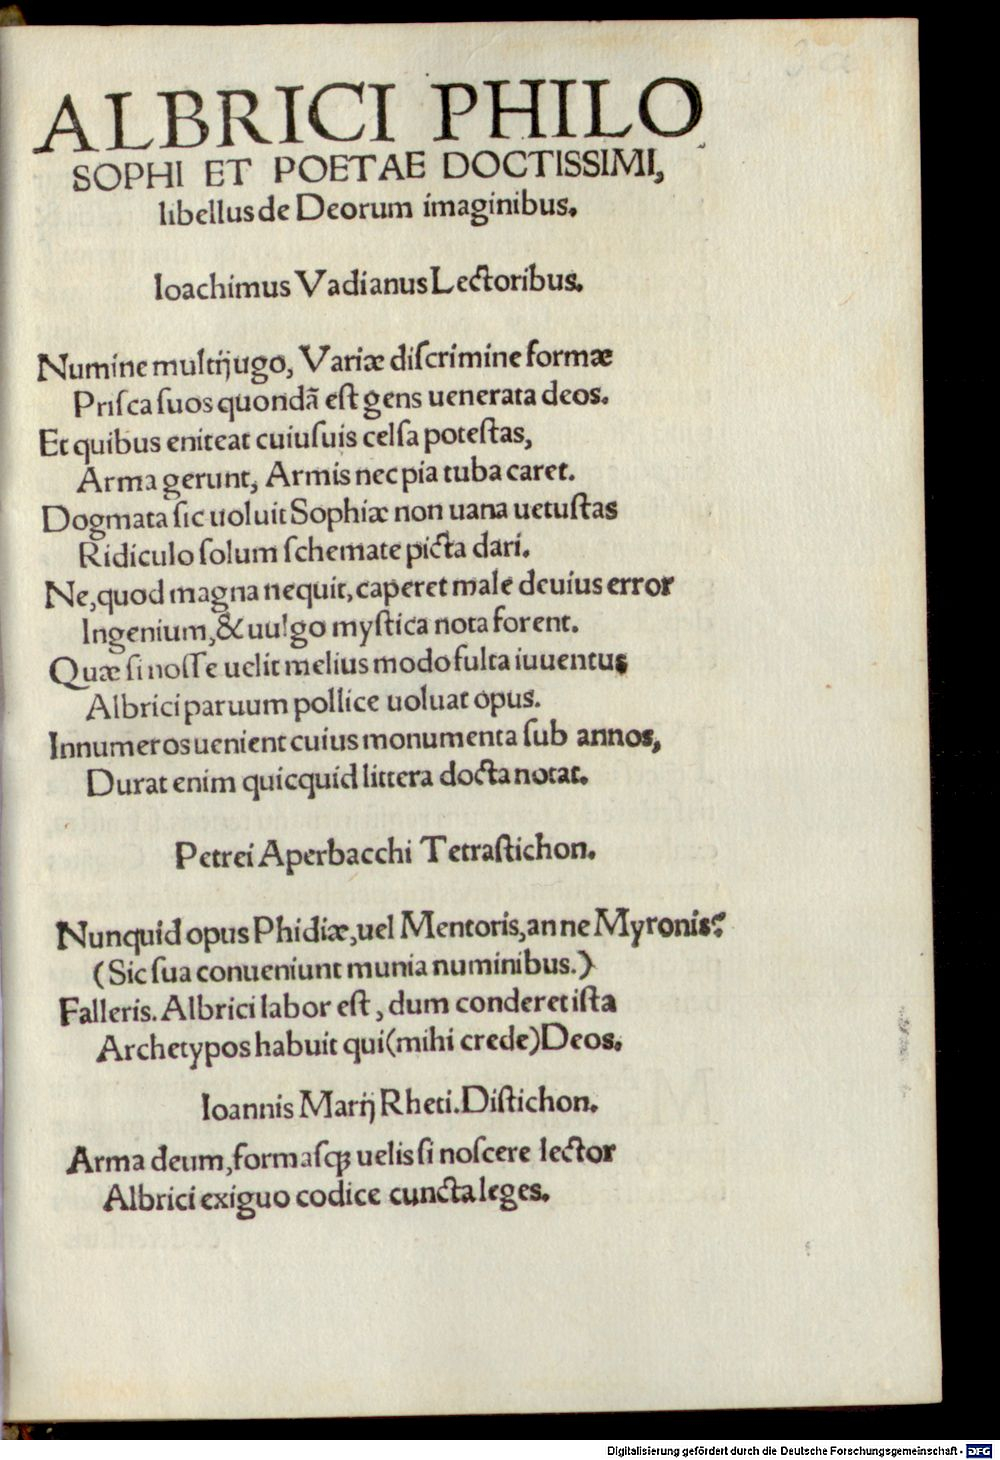 ALBRICI PHILO
SOPHI ET POETAE DOCTISSIMI,
libellus de Deorum imaginibus.
Ioachimus Vadianus Lectoribus.
Numine multĳugo, Variæ diſcrimine formæ
Priſca ſuos quondã eſt gens uenerata deos.
Et quibus eniteat cuiuſuis celſa poteſtas,
Arma gerunt, Armis nec pia tuba caret.
Dogmata ſic uoluit Sophiæ non uana uetuſtas
Ridiculo ſolum ſchemate picta dari.
Ne, quod magna nequit, caperet male deuius error
Ingenium, & uulgo myſtica nota forent.
Quæ ſi noſſe uelit melius modo fulta iuuentus
Albrici paruum pollice uoluat opus.
Innumeros uenient cuius monumenta ſub annos,
Durat enim quicquid littera docta notat.
Petrei Aperbacchi Tetraſtichon.
Nunquid opus Phidiæ, uel Mentoris, an ne Myronis?
(Sic ſua conueniunt munia numinibus.)
Falleris. Albrici labor eſt, dum conderet iſta
Archetypos habuit qui (mihi crede) Deos.
Ioannis Marĳ Rheti. Diſtichon.
Arma deum, formaſq; uelis ſi noſcere lector
Albrici exiguo codice cuncta leges.
Digitalisierung gefördert durch die Deutsche Forschungsgemeinschaft - DFG